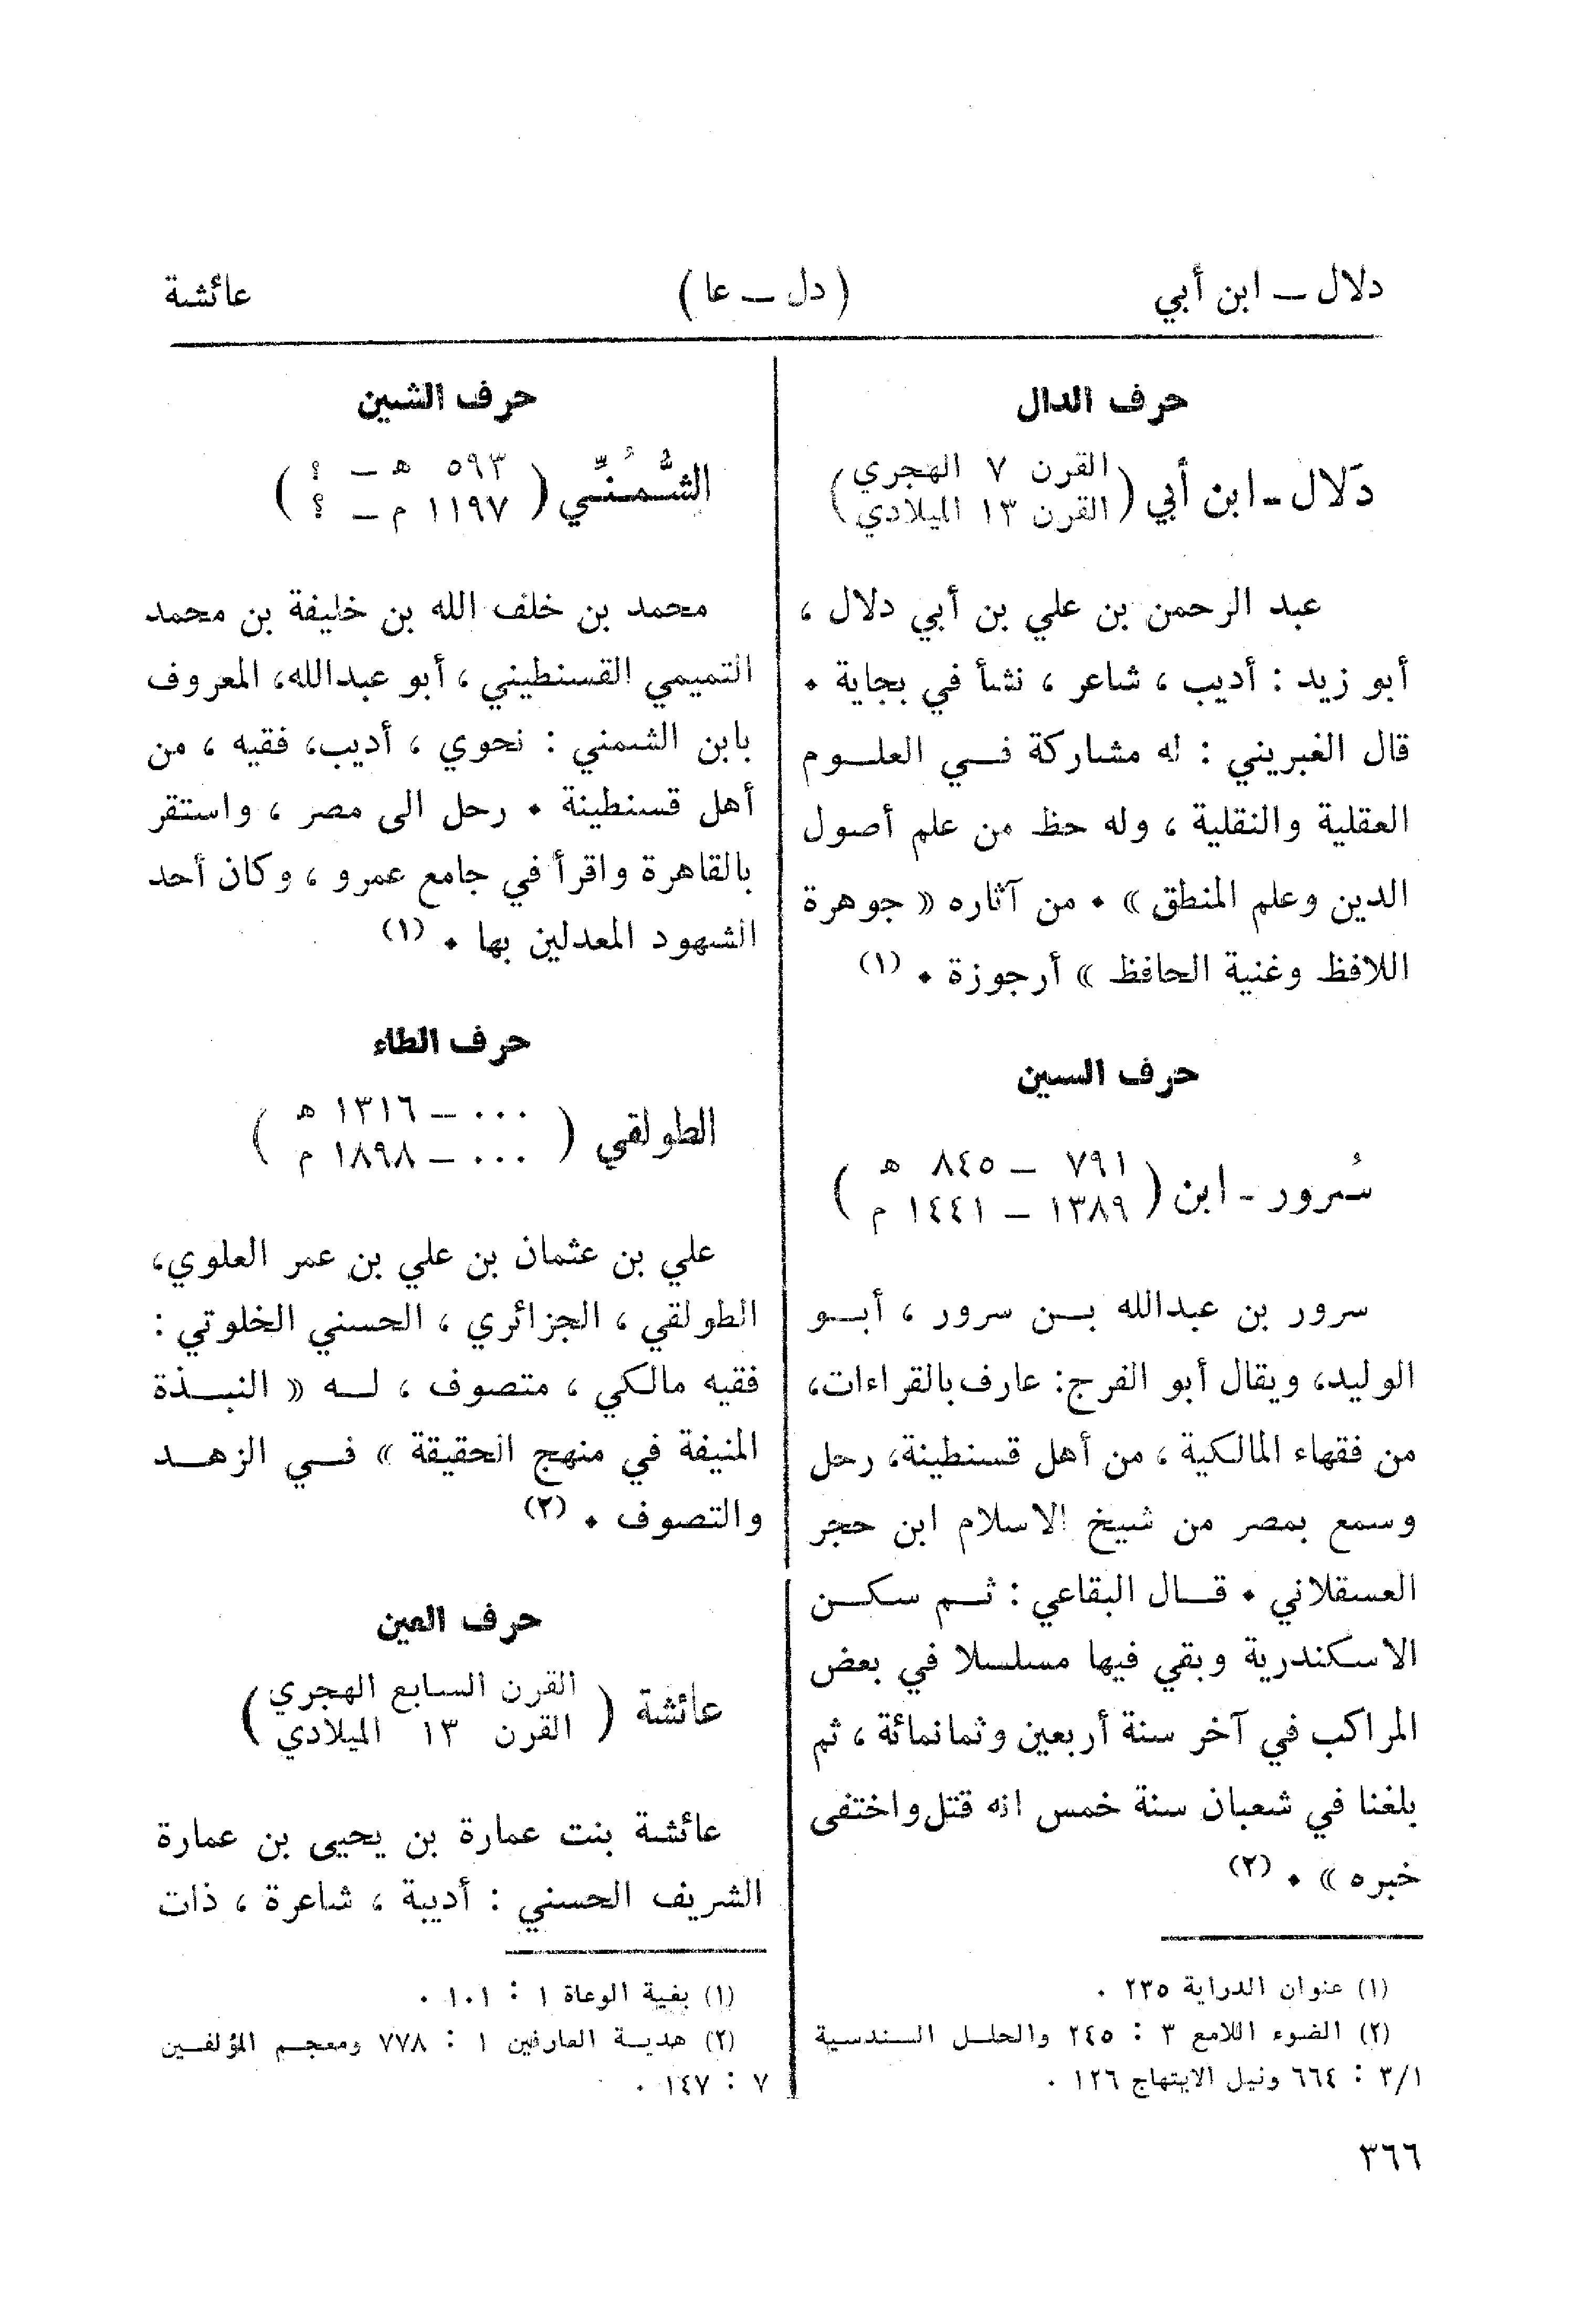 دلال ــ ابن أبي (دل ــ عا) عائشة
حرف الدال
دَلال ـ ابن أبي (القرن ٧ الهجري
القرن ١٣ الميلادي)
عبد الرحمن بن علي بن أبي دلال ،
أبو زيد : أديب ، شاعر ، نشأ في بجاية ٠
قال الغبريني : له مشاركة فــي العلــوم
العقلية والنقلية ، وله حظ من علم أصول
الدين وعلم المنطق » ٠ من آثاره « جوهرة
اللافظ وغنية الحافظ » أرجوزة ٠ (١)
حرف السين
سُرور ـ ابن (٧٩١ ــ ٨٤٥ هـ
١٣٨٩ ــ ١٤٤١ م)
سرور بن عبدالله بــن سرور ، أبــو
الوليد، ويقال أبو الفرج: عارف بالقراءات،
من فقهاء المالكية ، من أهل قسنطينة، رحل
وسمع بمصر من شيخ الاسلام ابن حجر
العسقلاني ٠ قــال البقاعي : ثــم سكــن
الاسكندرية وبقي فيها مسلسلا في بعض
المراكب في آخر سنة أربعين وثمانمائة ، ثم
بلغنا في شعبان سنة خمس انه قتل واختفى
خبره » ٠ (٢)
(١) عنوان الدراية ٢٣٥ ٠
(٢) الضوء اللامع ٣ : ٢٤٥ والحلــل الســندسية
٣/١ : ٦٦٤ ونيل الابتهاج ١٢٦ ٠
حرف الشين
الشُّمُنِّــي (٥٩٣ هـ ــ ؟
١١٩٧ م ــ ؟)
محمد بن خلف الله بن خليفة بن محمد
التميمي القسنطيني ، أبو عبدالله، المعروف
بابن الشمني : نحوي ، أديب، فقيه ، من
أهل قسنطينة ٠ رحل الى مصر ، واستقر
بالقاهرة واقرأ في جامع عمرو ، وكان أحد
الشهود المعدلين بها ٠ (١)
حرف الطاء
الطولقي (٠٠٠ ــ ١٣١٦ هـ
٠٠٠ ــ ١٨٩٨ م)
علي بن عثمان بن علي بن عمر العلوي،
الطولقي ، الجزائري ، الحسني الخلوتي :
فقيه مالكي ، متصوف ، لــه « النبــذة
المنيفة في منهج الحقيقة » فــي الزهــد
والتصوف ٠ (٢)
حرف العين
عائشة (القرن السابع الهجري
القرن ١٣ الميلادي)
عائشة بنت عمارة بن يحيى بن عمارة
الشريف الحسني : أديبة ، شاعرة ، ذات
(١) بغية الوعاة ١ : ١٠١ ٠
(٢) هديــة العارفين ١ : ٧٧٨ ومعجــم المؤلفــين
٧ : ١٤٧ ٠
٣٦٦